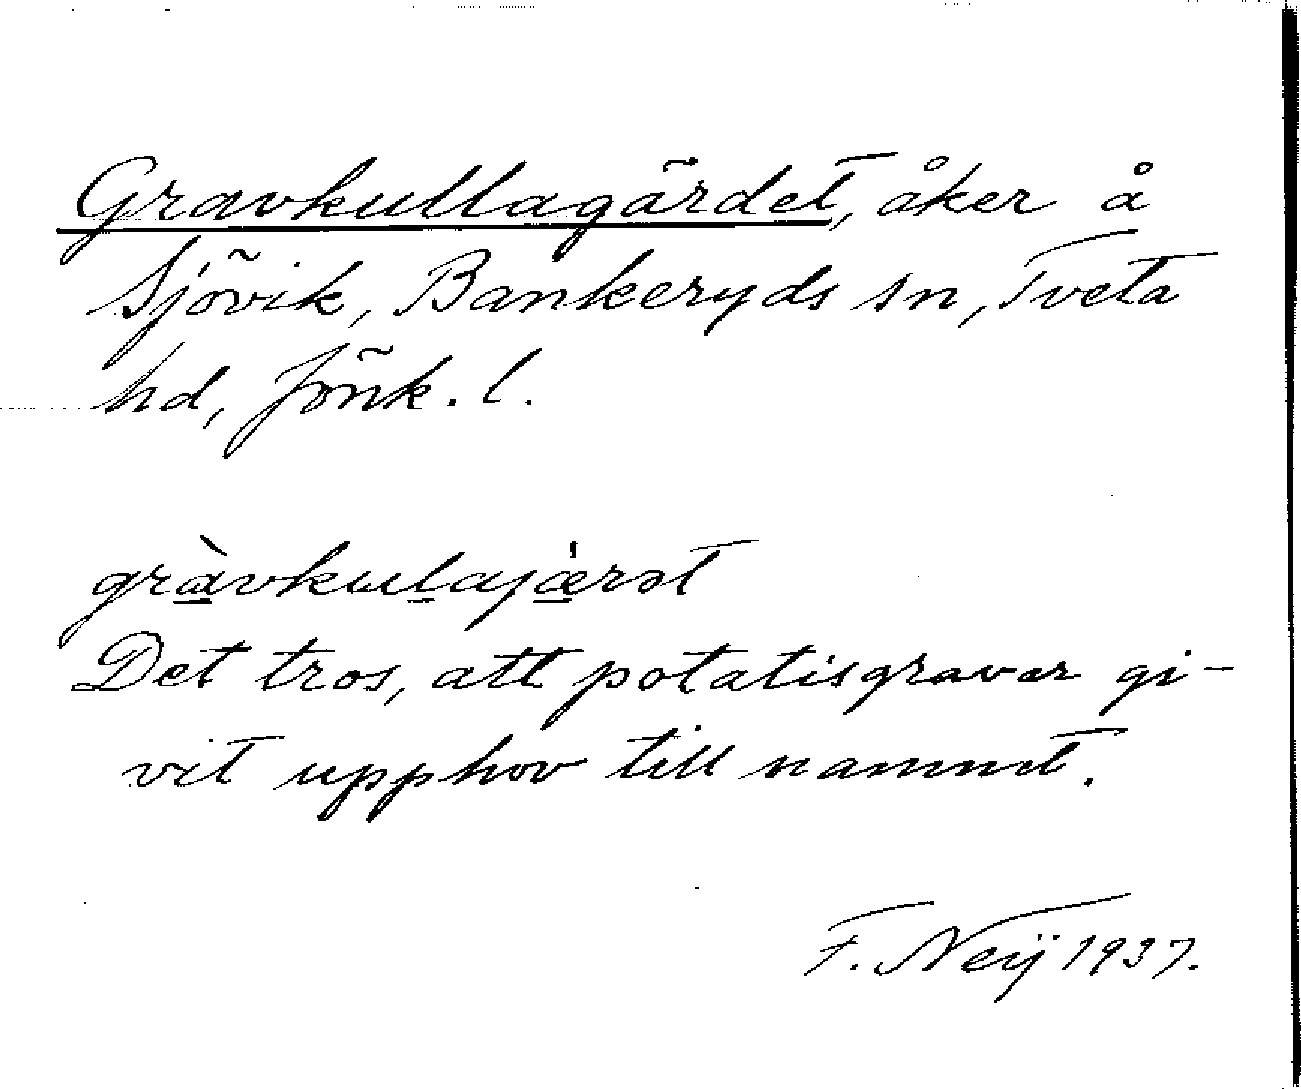 Gravkullagärdet, åker å
Sjövik, Bankeryds sn, Tveta
hd, Jönk. l.
gràvkulajærət
Det tros, att potatisgravar gi-
vit upphov till namnet.
F. Neij 1937.